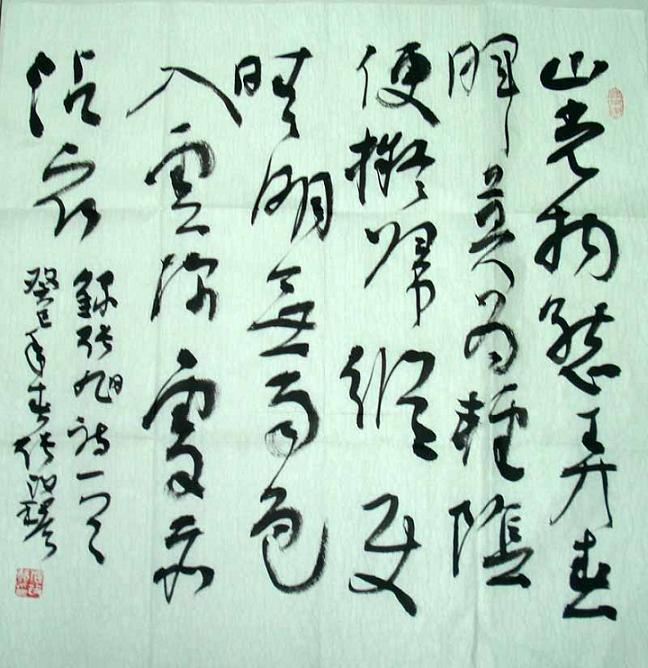 山光物態弄春
暉莫為輕陰
便擬歸縱使
晴明無雨色
入雲深處亦
沾衣
錄張旭詩一首
癸巳年春張